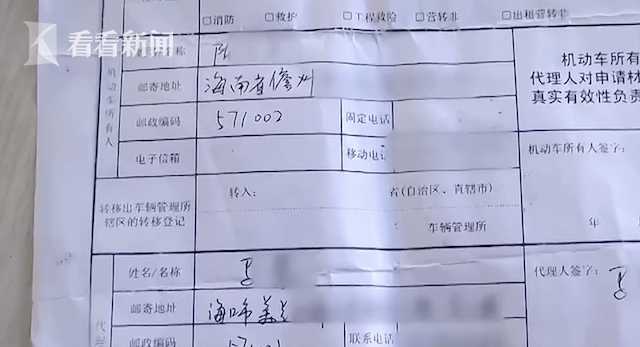 看看新闻
□消防 □救护 □工程救险 □营转非 □出租营转非
名称
机动车所有人
邮寄地址 海南省儋州
邮政编码 571002 固定电话
电子信箱 移动电话
机动车所有
代理人对申请材
真实有效性负责
机动车所有人签字:
转移出车辆管理所
辖区的转移登记
转入: 省(自治区、直辖市)
车辆管理所
年
姓名/名称
代理人签字:
邮寄地址 海
代理
邮政编码 联系电话